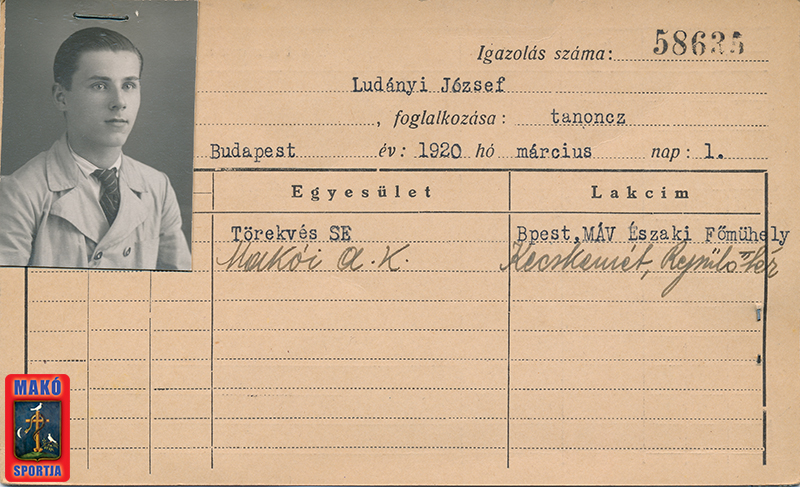 Igazolás száma: 58635
Ludányi József
, foglalkozása: tanoncz
Budapest év: 1920 hó március nap: 1.
Egyesület Lakcim
Törekvés SE Bpest, MÁV Északi Főmühely
Makói A. K. Kecskemét, Repülő tér
MAKÓ
SPORTJA